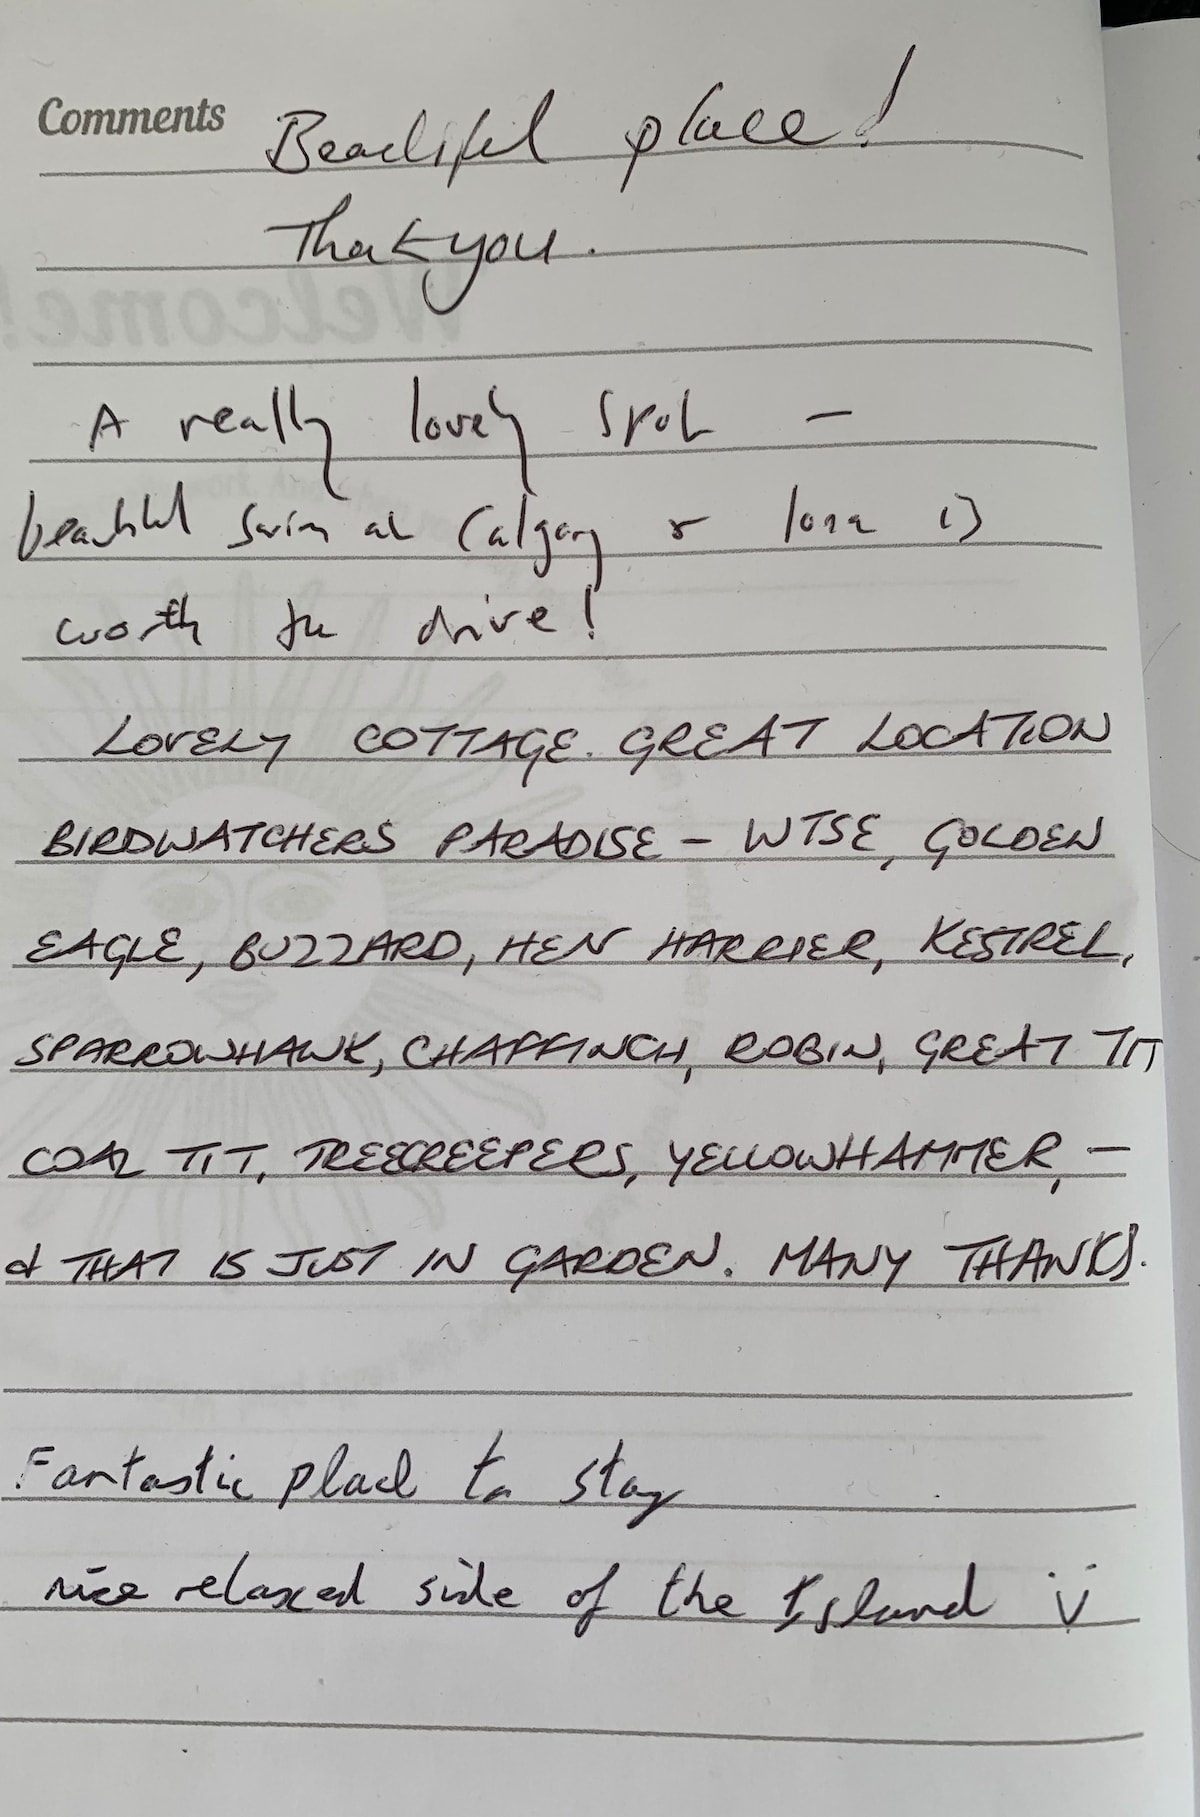 Comments Beautiful place!
Thank you.
A really lovely spot –
beautiful swim at Calgary & Iona is
worth the drive!
LOVELY COTTAGE. GREAT LOCATION
BIRDWATCHERS PARADISE – WTSE, GOLDEN
EAGLE, BUZZARD, HEN HARRIER, KESTREL,
SPARROWHAWK, CHAFFINCH, ROBIN, GREAT TIT
COAL TIT, TREECREEPERS, YELLOWHAMMER, –
& THAT IS JUST IN GARDEN. MANY THANKS.
Fantastic place to stay
nice relaxed side of the Island